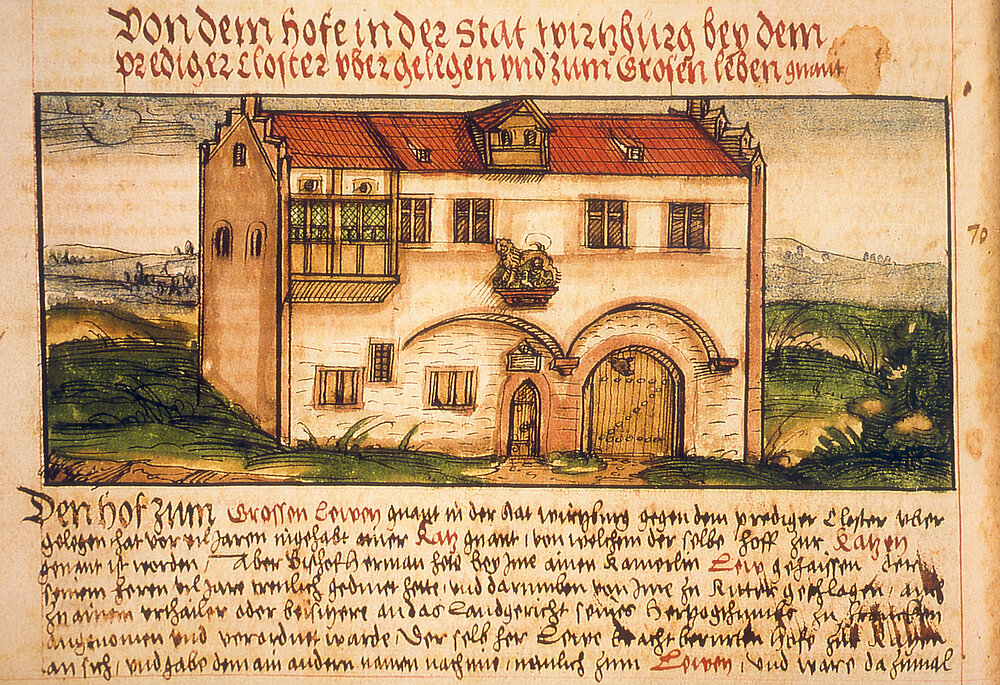 Von dem hofe in der Stat wirtzburg bey dem
prediger closter vber gelegen vnd zum Grosen leben gnant
70
Den hof zum Grossen Lewen gnant in der stat wirtzburg gegen dem prediger Closter vber
gelegen hat vor vil Jaren ingehabt ainer Katz gnant, von welchem der selbe hoff zur Katzen
genant ist worden, Aber Bischof Herman hete bey Ime ainen Kamerlin Lew gehaissen der
seinem heren vil Jare trewlich gedinet hete, vnd darumben von Ime zu Ritter geschlagen, auch
zu ainem vrthailer oder beisitzere an das Landgericht seines Hertzogthumbs zu francken
angenomen vnd verordnet warde Der selb her Lewe bracht berurten hofe zur Katzen
an sich, vnd gabe dem ain andern namen nach ime, nemlich zum Lewen, vnd ware dazumal